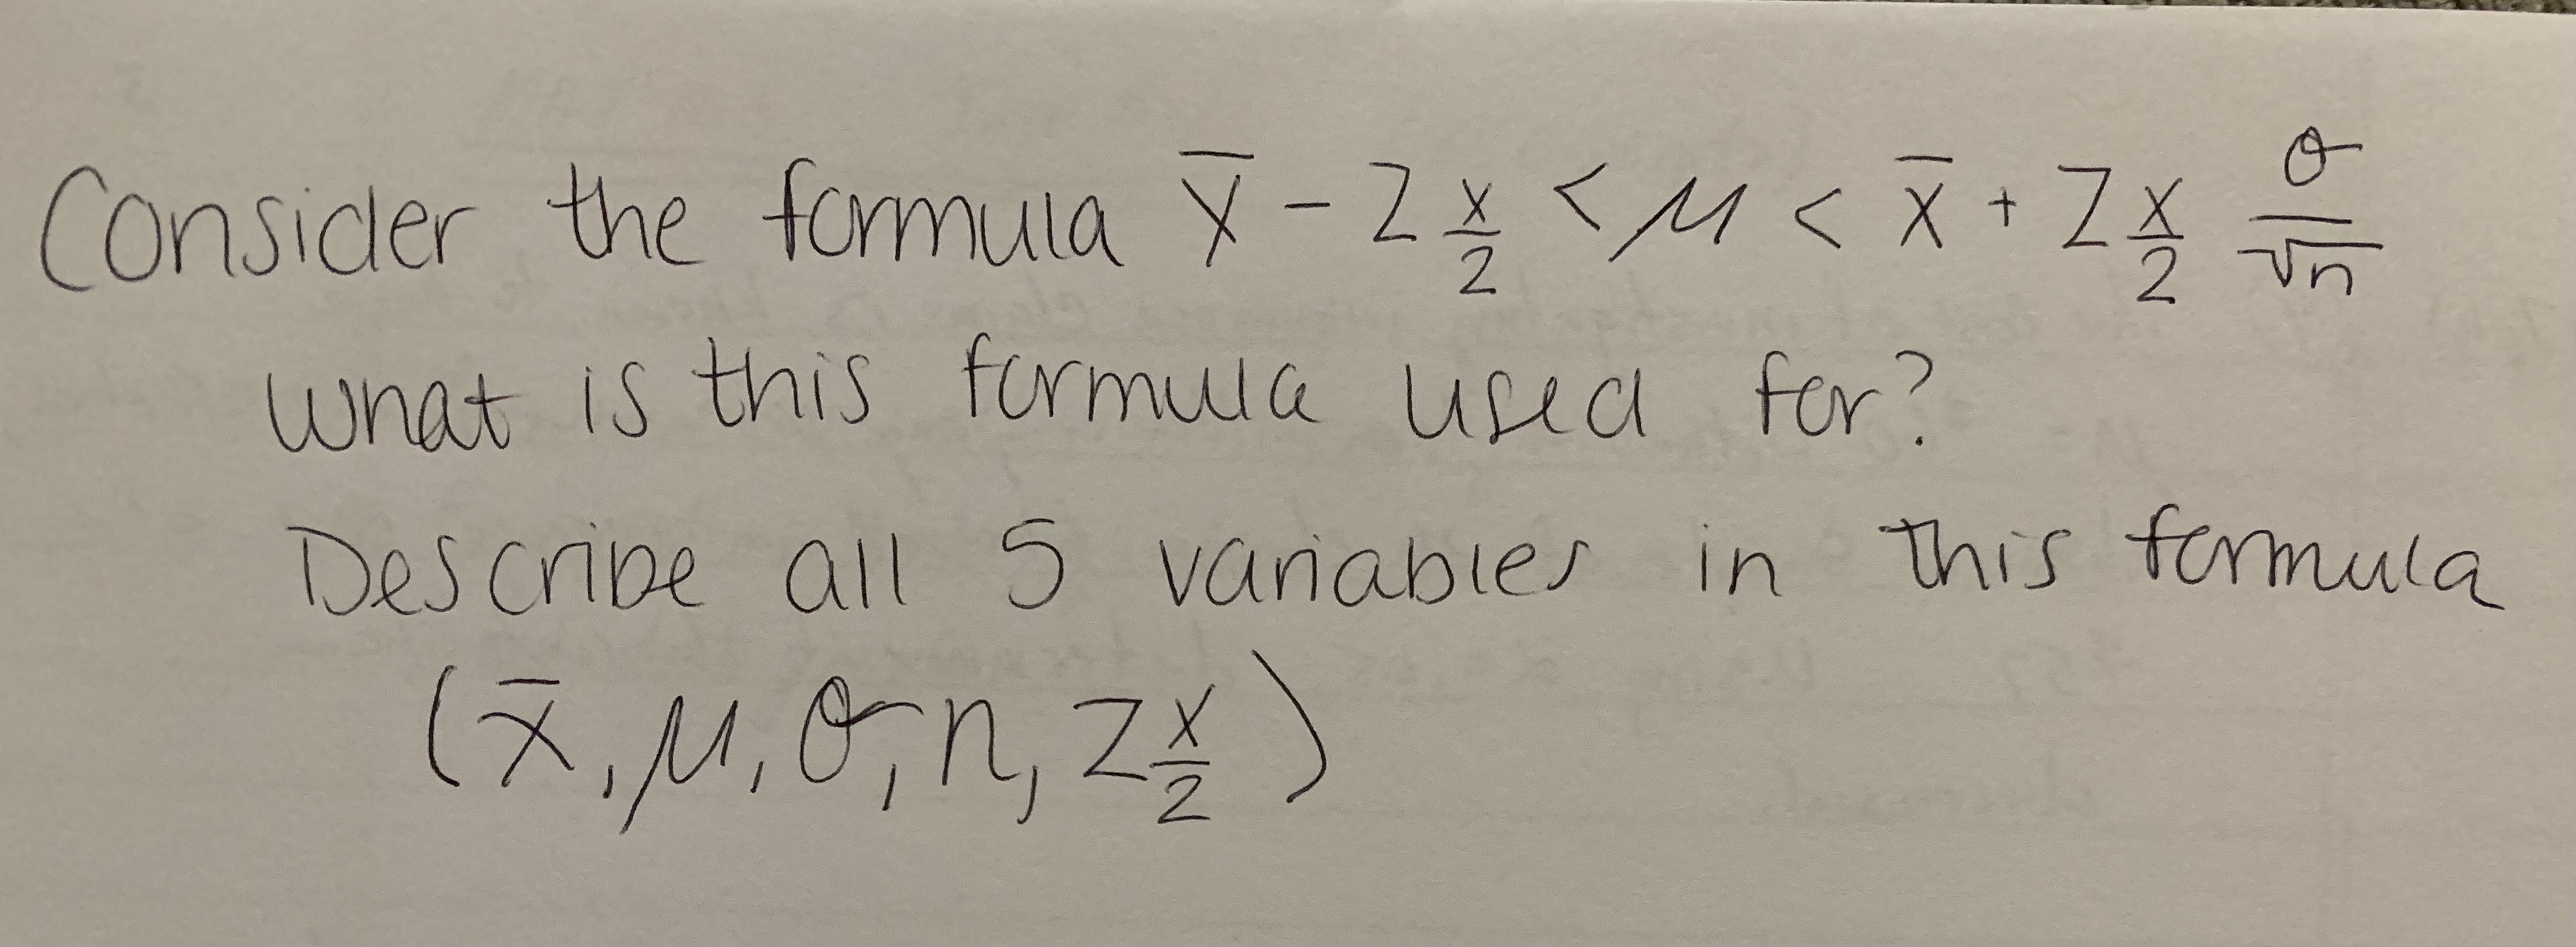 Consider the formula x̄ - Z x/2 < μ < x̄ + Z x/2 σ/√n
What is this formula used for?
Describe all 5 variables in this formula
(x̄, μ, σ, n, Z x/2)